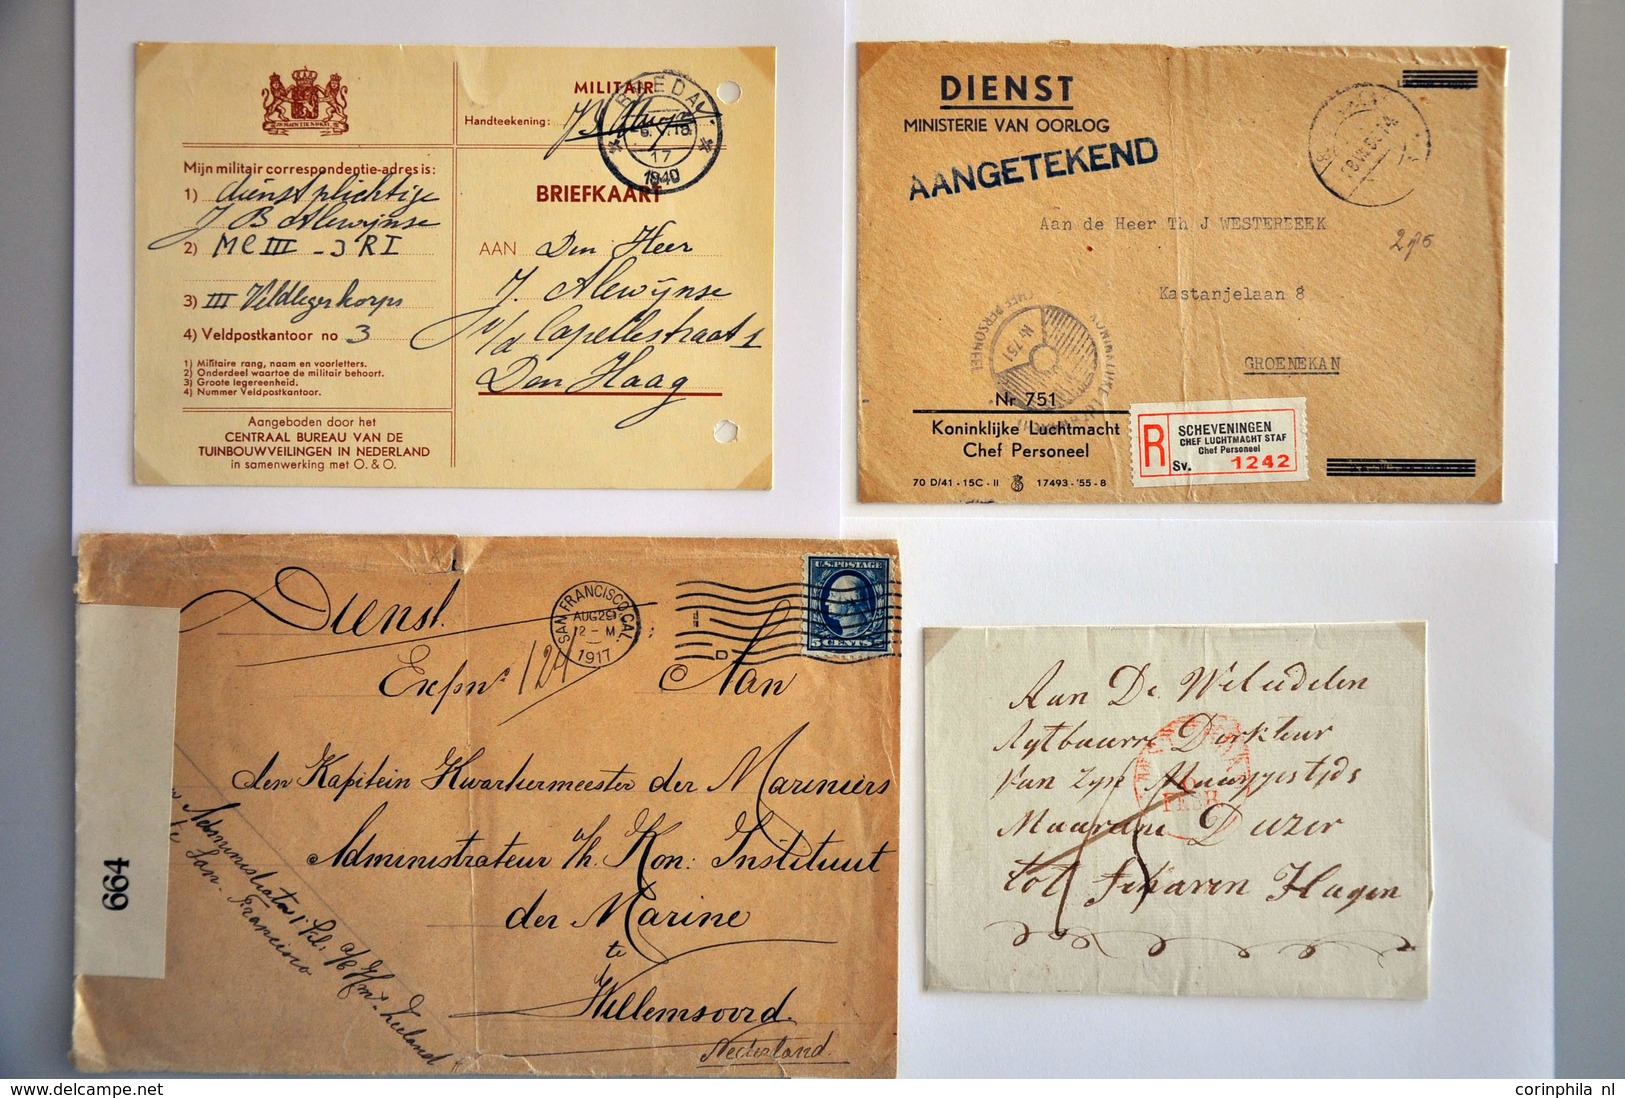 MILITAIR
Handteekening:
BREDA
17
1940
Mijn militair correspondentie-adres is:
1) dienstplichtige
J B Alewijnse
2) MC III - 3 R I
3) III Veldlegerkorps
4) Veldpostkantoor no 3
1) Militaire rang, naam en voorletters.
2) Onderdeel waartoe de militair behoort.
3) Groote legereenheid.
4) Nummer Veldpostkantoor.
Aangeboden door het
CENTRAAL BUREAU VAN DE
TUINBOUWVEILINGEN IN NEDERLAND
in samenwerking met O. & O.
BRIEFKAART
AAN Den Heer
J. Alewijnse
v/d Capellestraat 1
Den Haag
DIENST
MINISTERIE VAN OORLOG
AANGETEKEND
Aan de Heer Th J WESTERBEEK
Kastanjelaan 8
GROENEKAN
CHEF PERSONEEL
Nr 751
Nr 751
Koninklijke Luchtmacht
Chef Personeel
70 D/41 - 15C - II 17493 - '55 - 8
R
SCHEVENINGEN
CHEF LUCHTMACHT STAF
Chef Personeel
Sv. 1242
Dienst.
SAN FRANCISCO, CAL.
AUG 29
2 - M
1917
U.S. POSTAGE
5 CENTS 5
Exp nr 124
Aan
den Kapitein Kwartiermeester der Mariniers
Administrateur b/h. Kon: Instituut
der Marine
te
Willemsoord.
Nederland.
664
Administrateur
San Francisco
Zeeland
Aan De Wel edelen
Dirkteur
Van Zyn
tot Hagen
corinphila nl